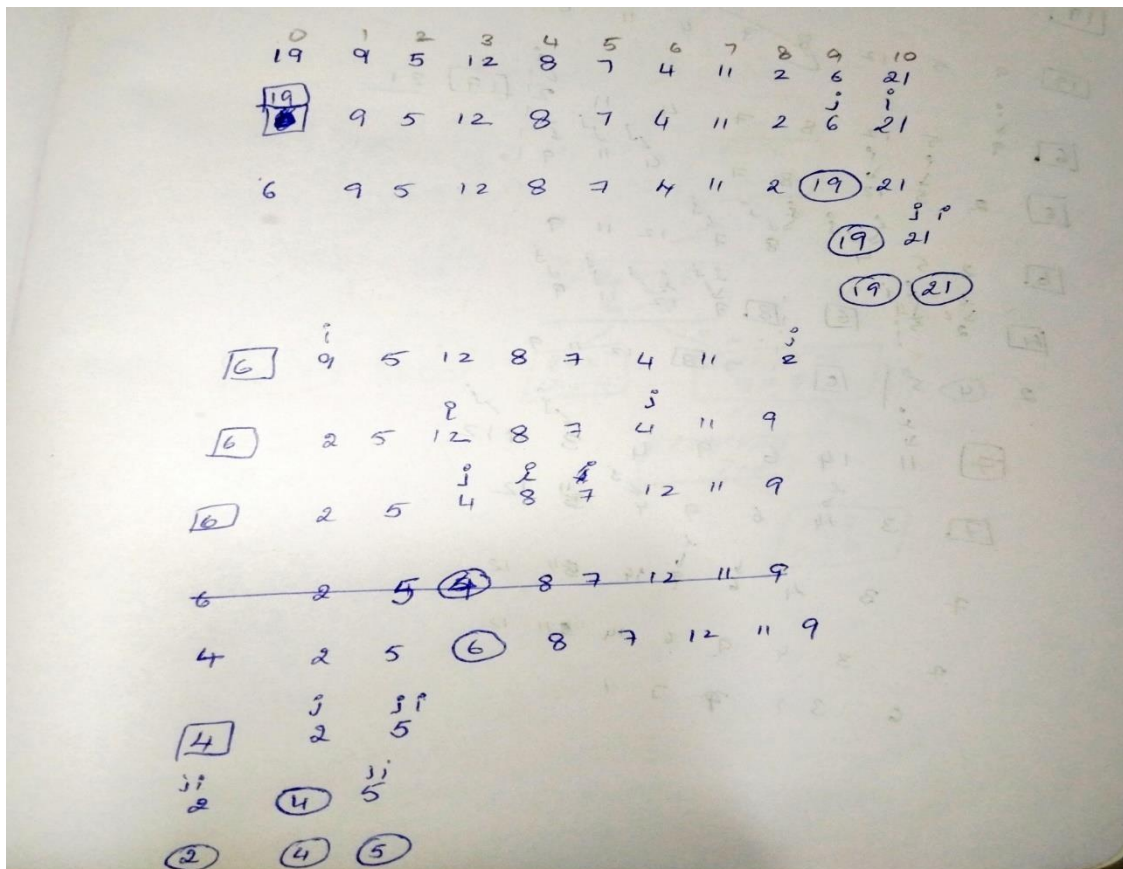 0 1 2 3 4 5 6 7 8 9 10
19 9 5 12 8 7 4 11 2 6 21
19
j i
9 5 12 8 7 4 11 2 6 21
6 9 5 12 8 7 4 11 2 19 21
j i
19 21
19 21
i j
6 9 5 12 8 7 4 11 2
i j
6 2 5 12 8 7 4 11 9
j i
6 2 5 4 8 7 12 11 9
6 2 5 4 8 7 12 11 9
4 2 5 6 8 7 12 11 9
j j i
4 2 5
j i j i
2 4 5
2 4 5